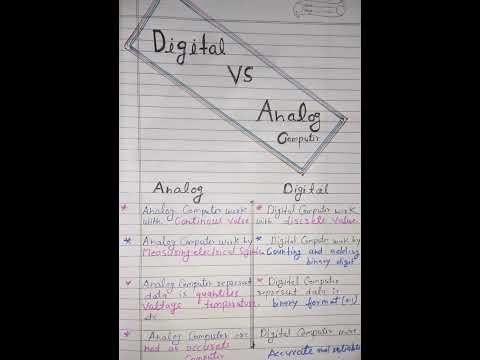 Digital
VS
Analog
Computer
Analog
Digital
* Analog Computer work
with Continous Value
* Digital Computer work
with discrete Value.
* Analog Computer work by
Measuring electrical
* Digital Computer work by
Counting and adding
binary digit
* Analog Computer represent
data is quantities
Valtage, temperature.
etc
* Digital Computer
represent data is
binary format (0,1)
* Analog Computer are
not as accurate
Computer
* Digital Computer more
Accurate and reliable